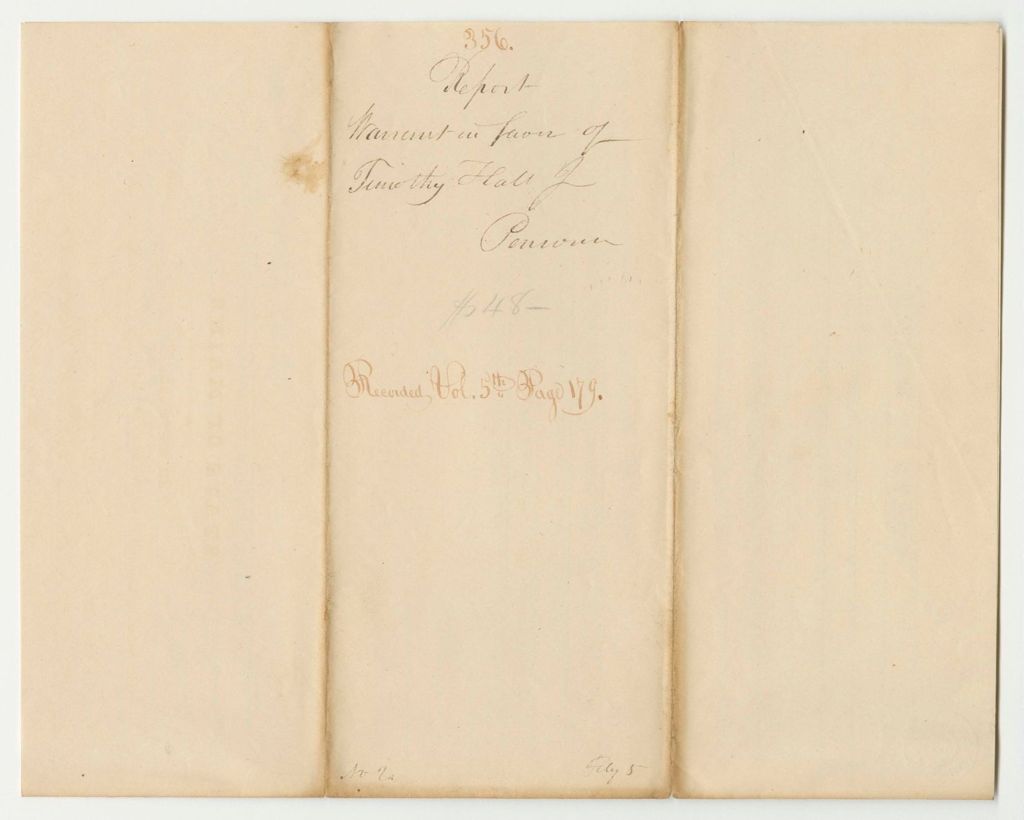 356.
Report
Warrant in favor of
Timothy Hall
Pensioner
$48—
Recorded, Vol. 5th Page 179.
No
Feby 5